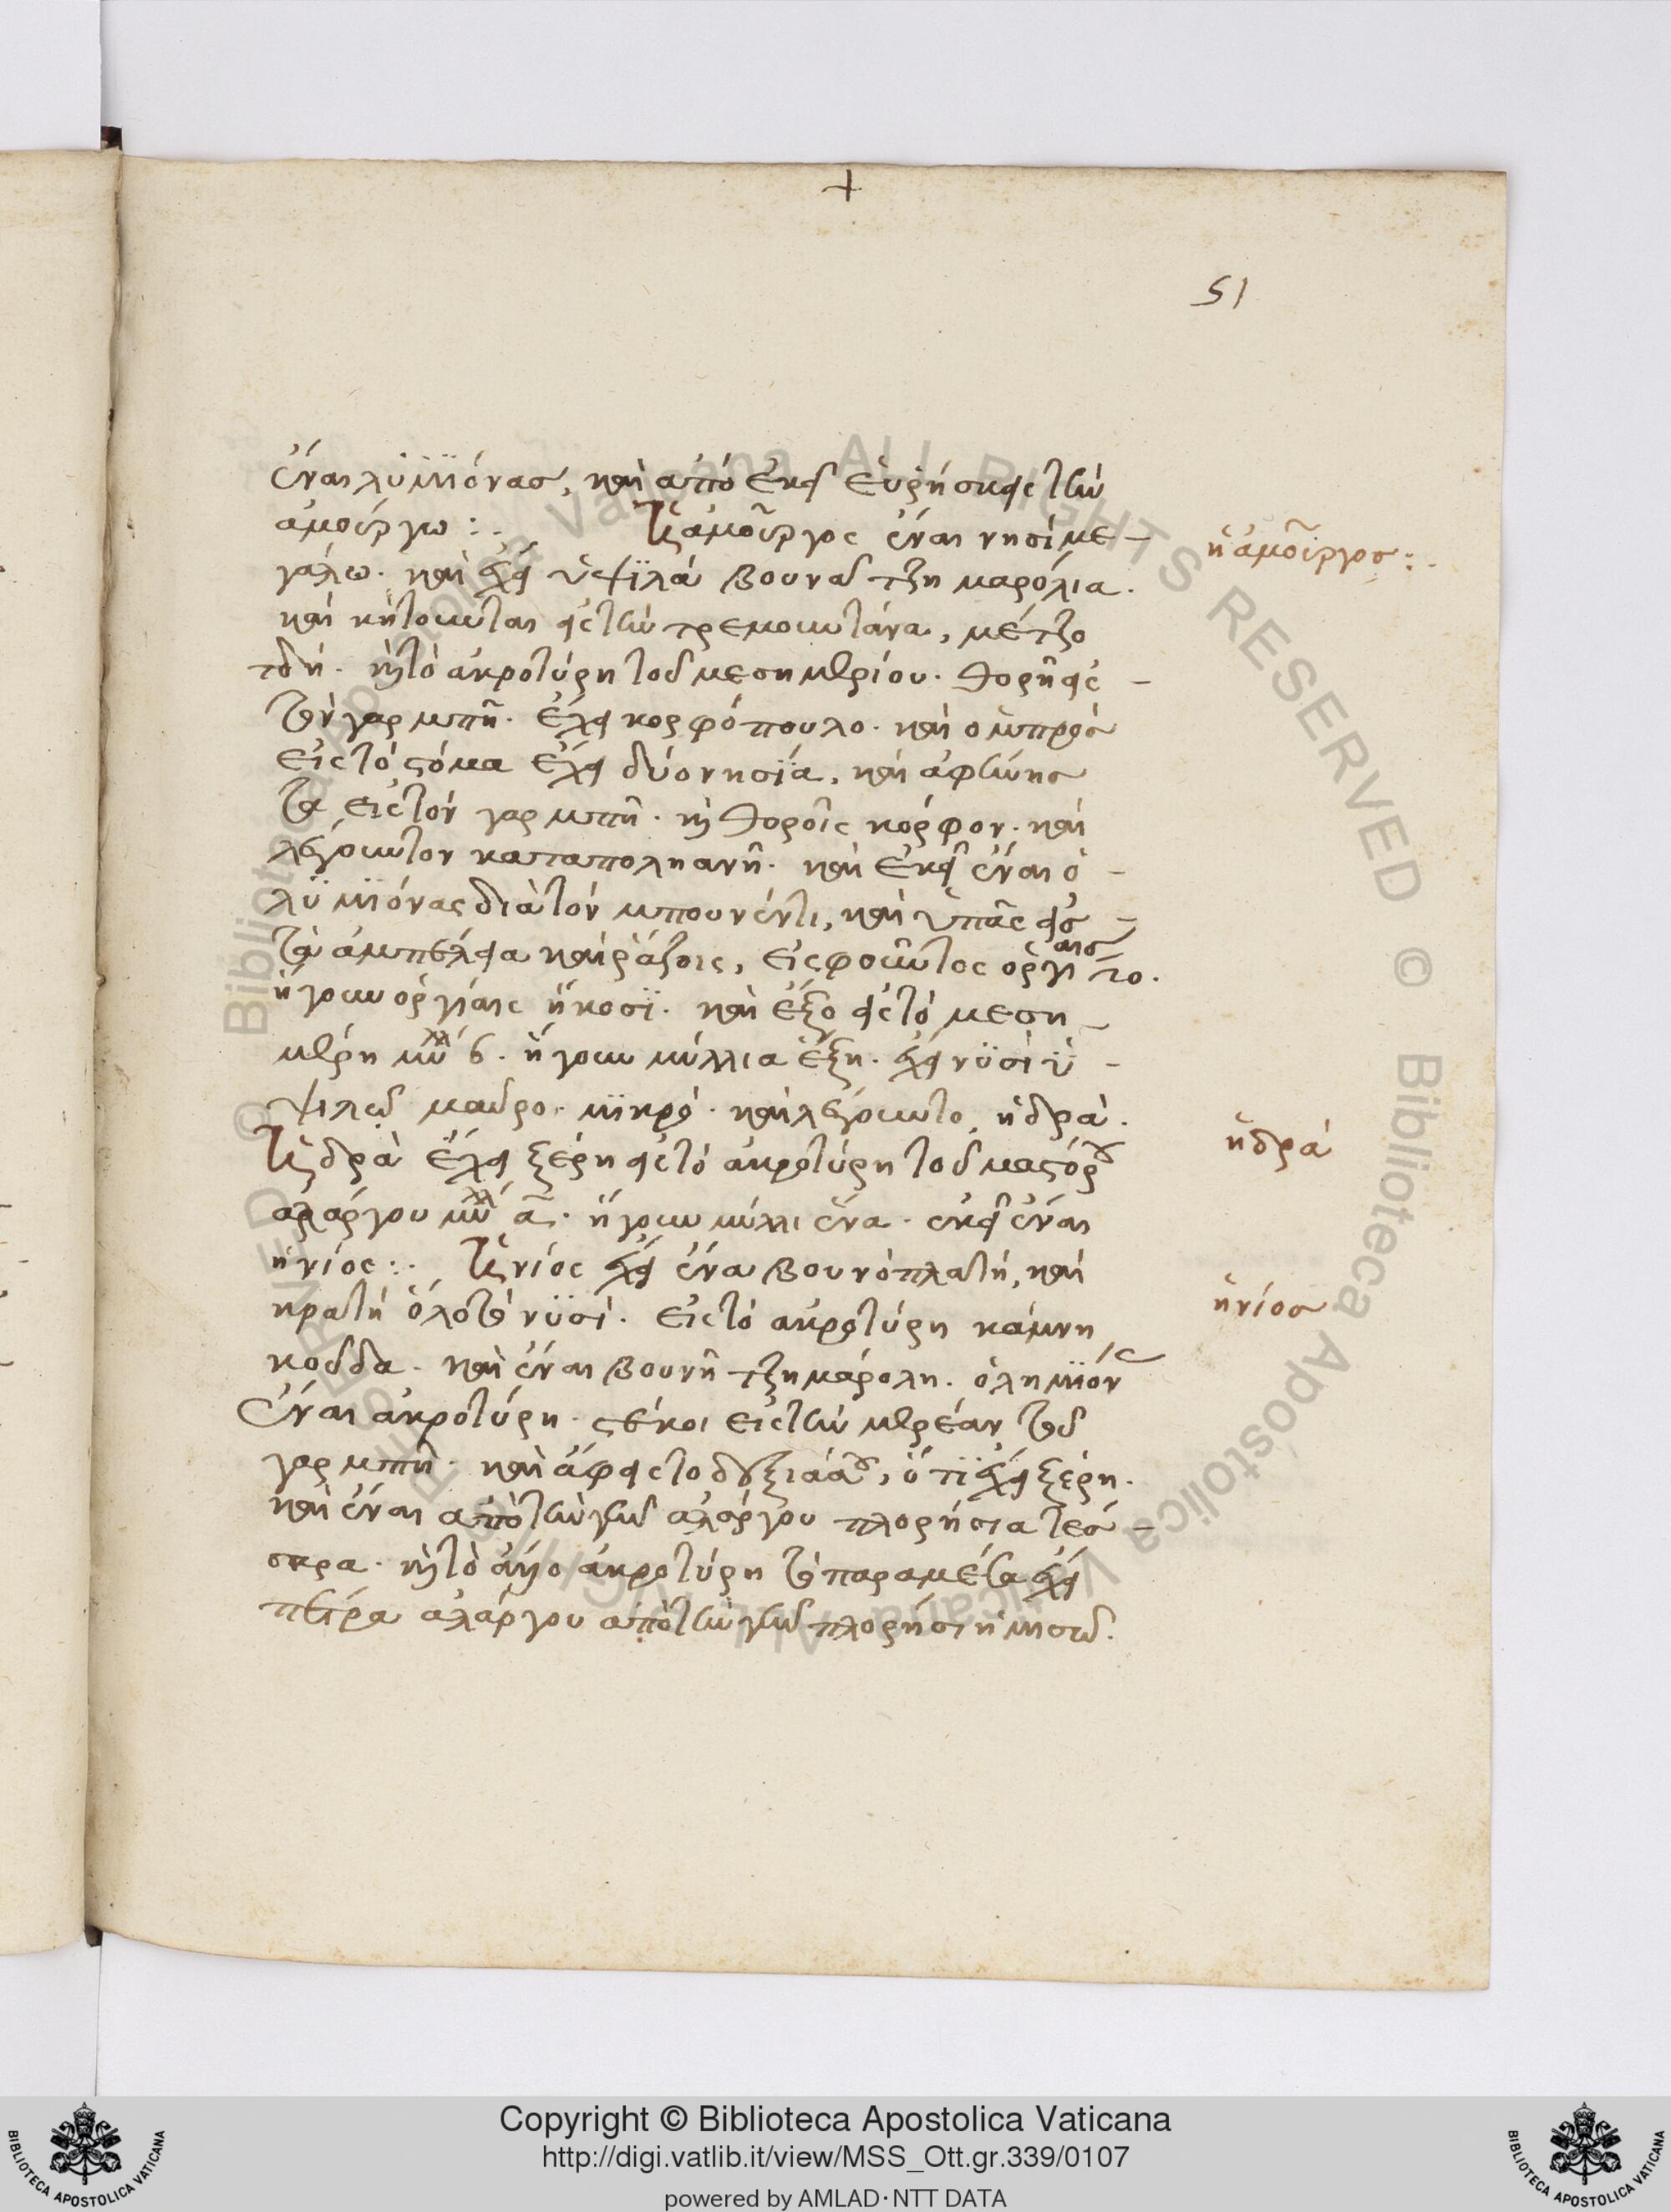 +
51
έναι λϋμϊόνασ, καὶ ἀπὸ ἐκεῖ ἑυρήσκεις τὴν
ἀμούργω :. Ἡ ἀμοῦργος έναι νησί με-
γάλω. καὶ ἔχει ὑψϊλά βουνά τζη μαρόλια.
καὶ κήτουνται εἰς τὴν τρεμουντάνα, μέτζο
τδή. κὴ τὸ ἀκροτύρη τοῦ μεσημβρίου. θορῆ εἰς -
τὸν γαρμπῆ. ἔχει κορφόπουλο. καὶ ὀμπρὸσ
εἰς τὸ στόμα ἔχει δύο νησϊά, καὶ ἀφὴνησ
τα εἰς τὸν γαρμπῆ. κὴ θοροῖς κόρφον. καὶ
λέγουντον καταποληανῆ. καὶ ἐκεῖ έναι ὁ -
λϋμϊόνας διὰ τὸν μπουνέντι, καὶ ὑπᾶς εἰσ -
τὰ ἀμπέλεια καὶ ράζοις, εἰς φοῦντος ὀργιαισ το.
ήγουν ὀργίαις ήκοσϊ. καὶ ἔξο εἰς τὸ μεση -
μβρη μύλλ ϛ. ήγουν μύλλια ἕξη. ἔχει νϋσὶ ὑ -
ψιλῶ μαῦρο. μϊκρὸ. καὶ λέγουντο, ἡδρά.
Ἡ δρὰ ἔχει ξέρη εἰς τὸ ἀκροτύρη τοῦ μαϊστόρου
ἀλάργου μύλλ α. ήγουν μύλλι ένα. ἐκεῖ έναι
ἡ νίος :. Ἡ νίος ἔχει ένα βουνὸ πλατή, καὶ
κρατή ὅλο τὸ νϋσί. εἰς τὸ ἀκροτύρη κάμνη
κοῦδα. καὶ έναι βουνῆ τζημάρολη. ὁ λημϊόνας
έναι ἀκροτύρη. στέκοι εἰς τὴν μβρέαν τοῦ
γαρμπῆ. καὶ ἄφεις το δεξιά σου, ὅτϊ ἔχει ξέρη.
καὶ έναι ἀπὸ τὴν γῆν ἀλάργου πλορήσια τεσ -
σερα. κὴ τὸ ἄλλο ἀκροτύρη τὸ παραμέσα ἔχει
πέτρα ἀλάργου ἀπὸ τὴν γῆν πλορήσι ήμισῶ.
ἡ ἀμοῦργοσ :.
ἡδρά
ἡνίοσ
Copyright © Biblioteca Apostolica Vaticana
http://digi.vatlib.it/view/MSS_Ott.gr.339/0107
powered by AMLAD·NTT DATA
BIBLIOTECA APOSTOLICA VATICANA
BIBLIOTECA APOSTOLICA VATICANA